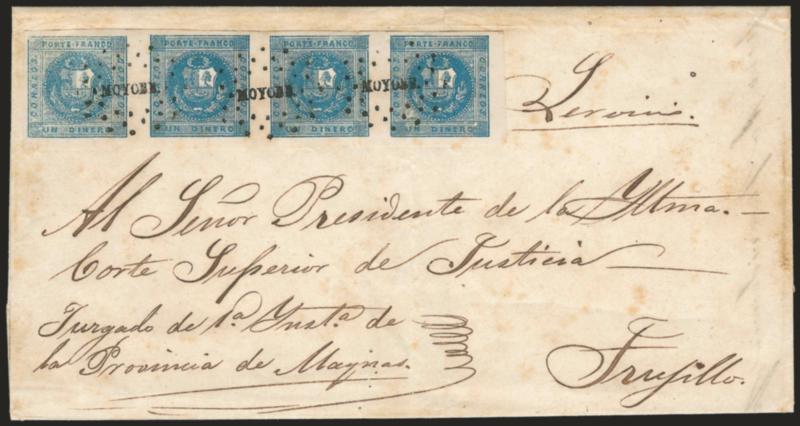 PORTE FRANCO PORTE FRANCO PORTE FRANCO PORTE FRANCO
CORREOS CORREOS CORREOS CORREOS
MOYOBA MOYOBA MOYOBA
UN DINERO UN DINERO UN DINERO UN DINERO
Al Señor Presidente de la Yltma.
Corte Superior de Justicia
Juzgado de 1ª Ynstª de
la Provincia de Maynas.
Trujillo.